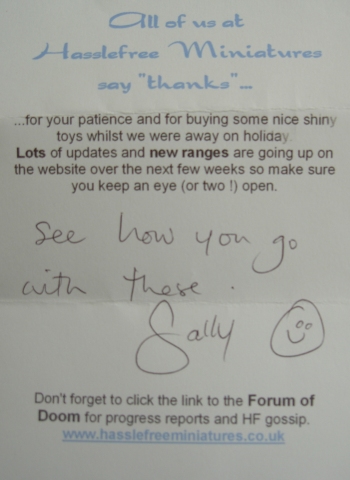 All of us at
Hasslefree Miniatures
say "thanks"...
...for your patience and for buying some nice shiny
toys whilst we were away on holiday.
Lots of updates and new ranges are going up on
the website over the next few weeks so make sure
you keep an eye (or two !) open.
See how you go
with these.
Sally
Don't forget to click the link to the Forum of
Doom for progress reports and HF gossip.
www.hasslefreeminiatures.co.uk